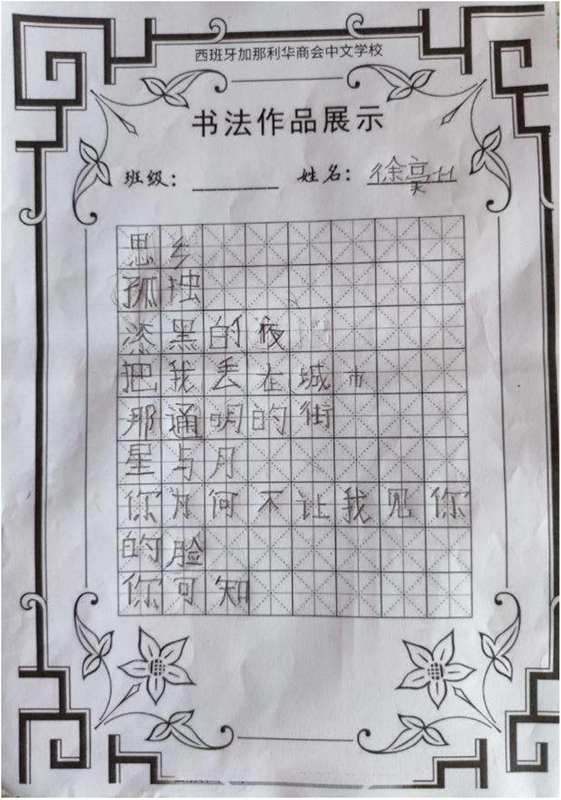 西班牙加那利华商会中文学校
书法作品展示
班级：________ 姓名：徐
思乡
孤独
漆黑的夜
把我丢在城市
那通明的街
星与月
你为何不让我见你
的脸
你可知